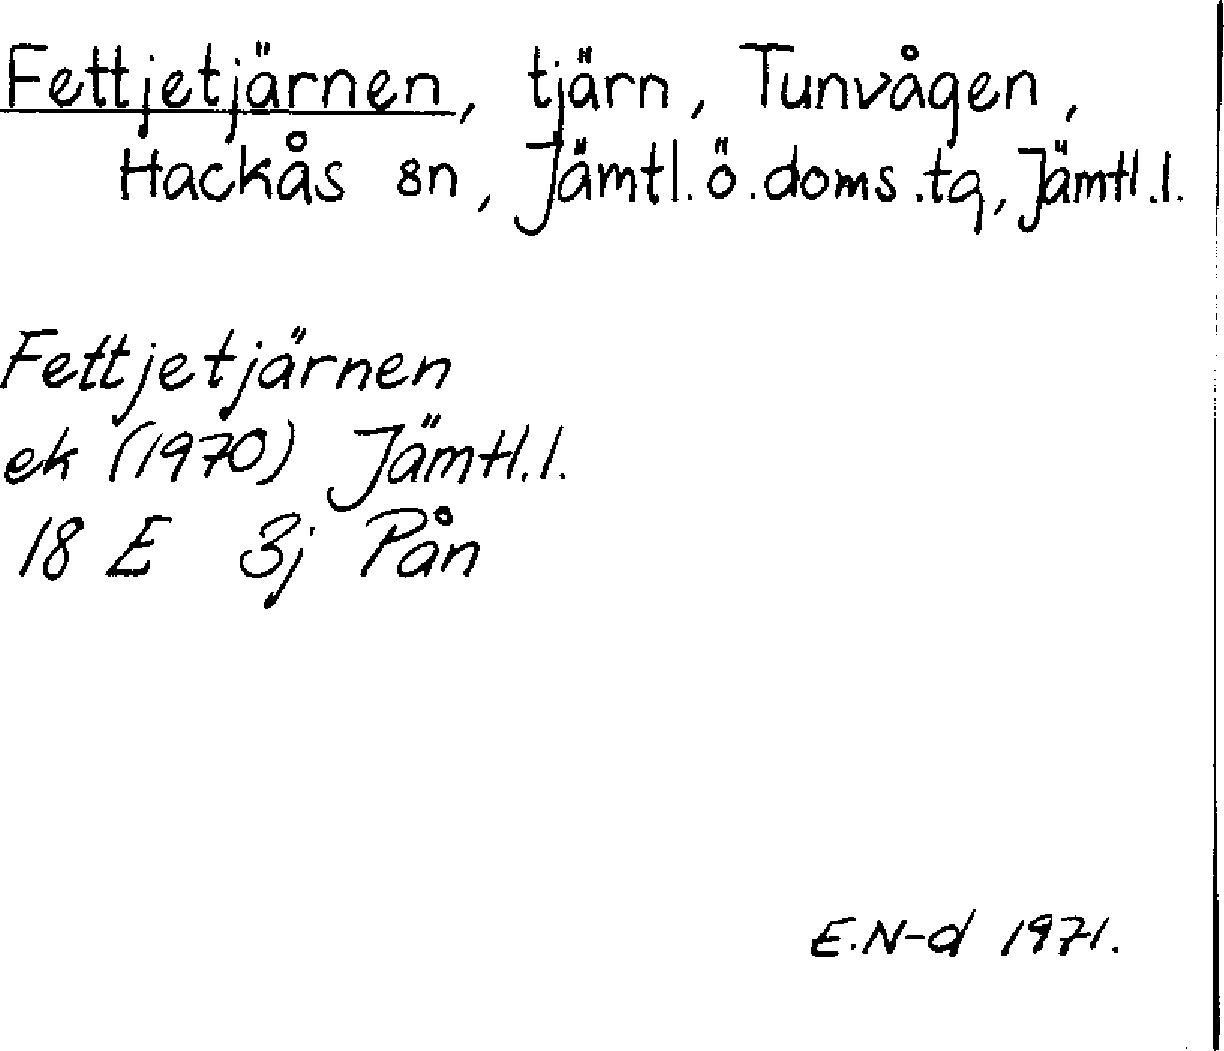 Fettjetjärnen, tjärn, Tunvågen,
Hackås sn, Jämtl.ö.doms.tg, Jämtl.l.
Fettjetjärnen
ek (1970) Jämtl.l.
18 E 3j Pån
E.N-d 1971.